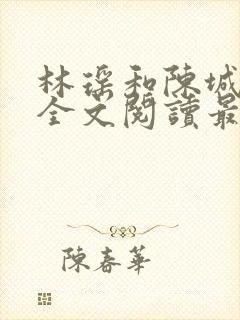 林瑶和陳城
全文閱讀最
陳春華